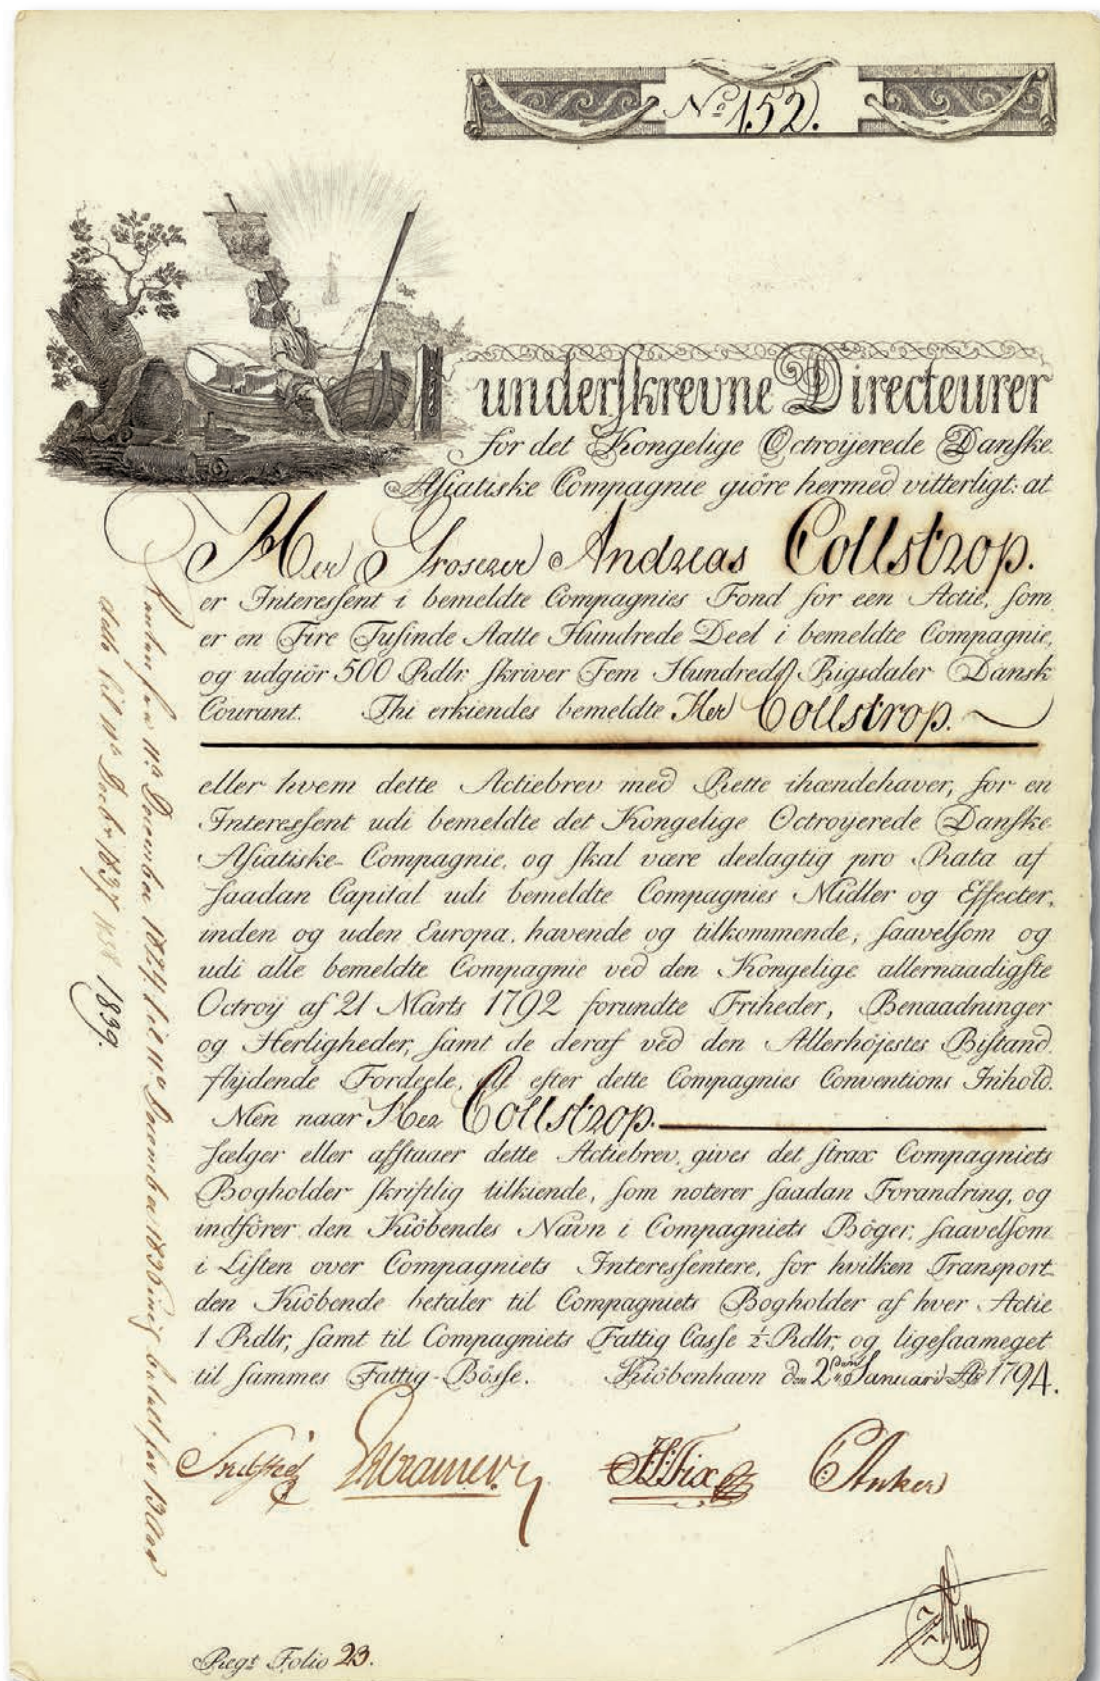 No. 152.
underskrevne Directeurer
for det Kongelige Octroijerede Danske
Asiatiske Compagnie giöre hermed vitterligt: at
Herr Groserer Andreas Collstrop.
er Interessent i bemeldte Compagnies Fond for een Actie, som
er en Fire Tusinde Aatte Hundrede Deel i bemeldte Compagnie,
og udgiör 500 Rdlr. skriver Fem Hundrede Rigsdaler Dansk
Courant. Thi erkiendes bemeldte Herr Collstrop.
eller hvem dette Actiebrev med Rette ihændehaver, for en
Interessent udi bemeldte det Kongelige Octroyerede Danske
Asiatiske Compagnie, og skal være deelagtig pro Rata af
saadan Capital udi bemeldte Compagnies Midler og Effecter,
inden og uden Europa, havende og tilkommende, saavelsom og
udi alle bemeldte Compagnie ved den Kongelige allernaadigste
Octroij af 21 Marts 1792 forundte Friheder, Benaadninger
og Herligheder, samt de deraf ved den Allerhöjestes Bistand
flydende Fordeele, Alt efter dette Compagnies Conventions Inhold.
Men naar Herr Collstrop.
sælger eller afstaaer dette Actiebrev, gives det strax Compagniets
Bogholder skriftlig tilkiende, som noterer saadan Forandring, og
indförer den Kiöbendes Navn i Compagniets Böger, saavelsom
i Listen over Compagniets Interessentere, for hvilken Transport
den Kiöbende betaler til Compagniets Bogholder af hver Actie
1 Rdlr, samt til Compagniets Fattig Casse ½ Rdlr, og ligesaameget
til sammes Fattig-Bösse. Kiöbenhavn den 2den Januarii Ao 1794.
Kramer HTFix CAnker
Regt Folio 23.
Renten fra 11te December 1824 til 11te December 1836 betalt for 13 Aar
dito til 11te Decbr 1837 1838 1839.